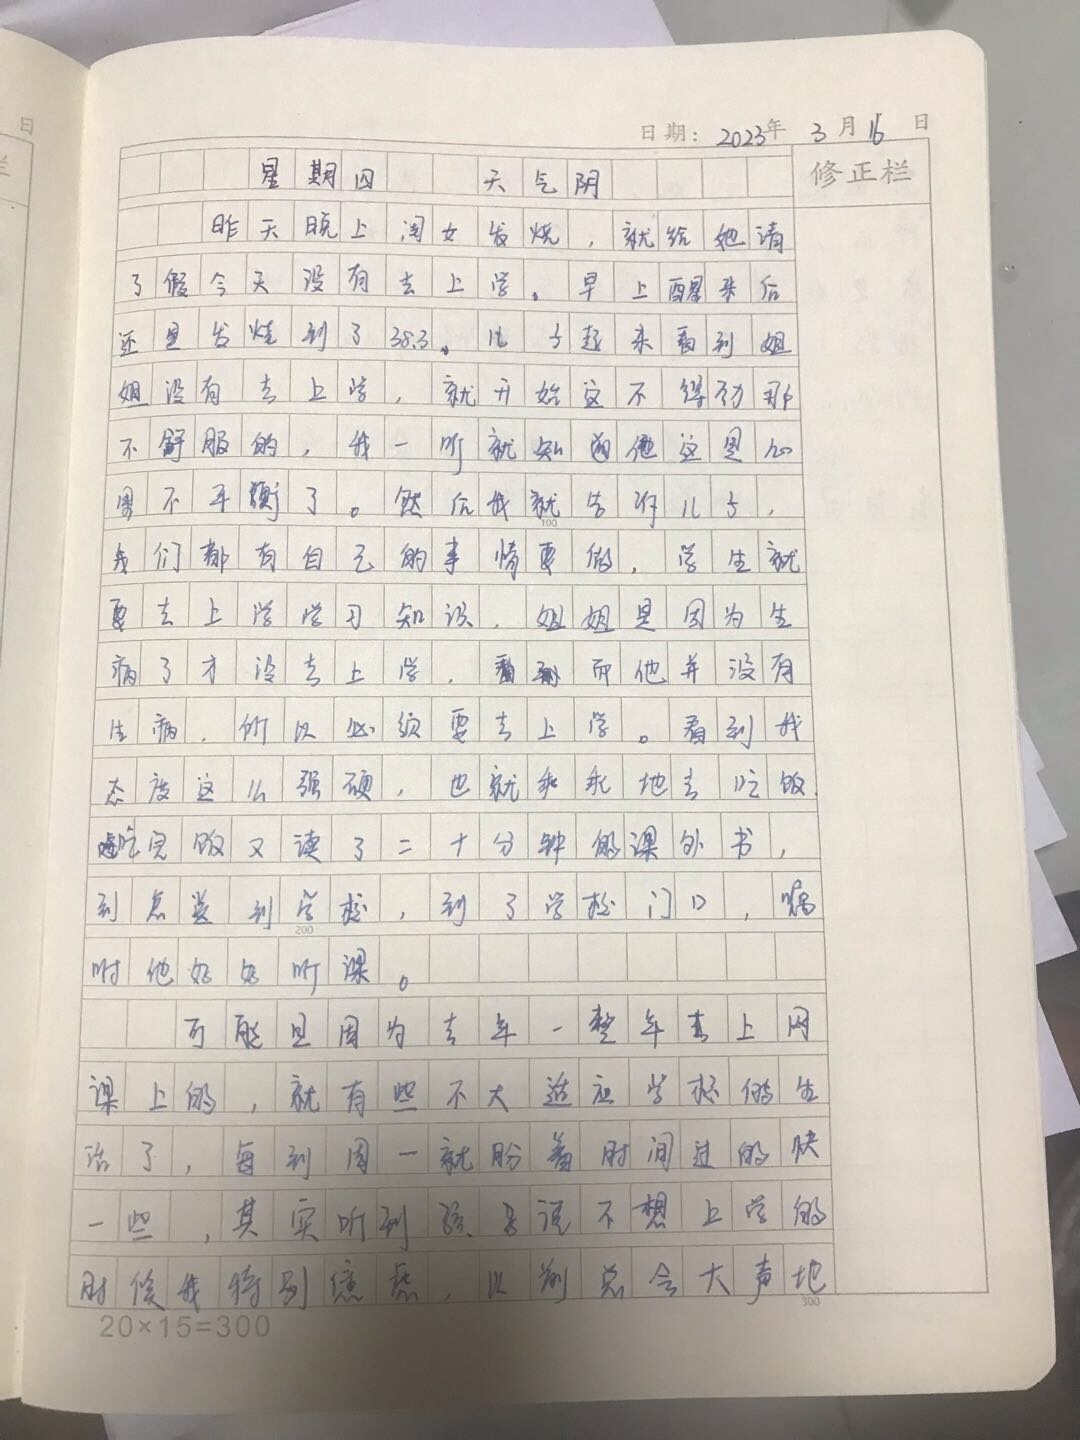 日期：2023年 3月16日
修正栏
星期四 天气阴
昨天晚上闺女发烧，就给她请
了假今天没有去上学。早上醒来后
还是发烧到了38.3。儿子起来看到姐
姐没有去上学，就开始这不得劲那
不舒服的，我一听就知道他这是心
里不平衡了。然后我就告诉儿子，
100
我们都有自己的事情要做，学生就
要去上学学习知识，姐姐是因为生
病了才没去上学，而他并没有
生病，所以必须要去上学。看到我
态度这么强硬，也就乖乖地去吃饭，
吃完饭又读了二十分钟的课外书，
到点送到学校，到了学校门口，嘱
200
咐他好好听课。
可能是因为去年一整年来上网
课上的，就有些不大适应学校的生
活了，每到周一就盼着时间过的快
一些，其实听到孩子说不想上学的
时候我特别焦虑，以前总会大声地
300
20×15=300
日
栏